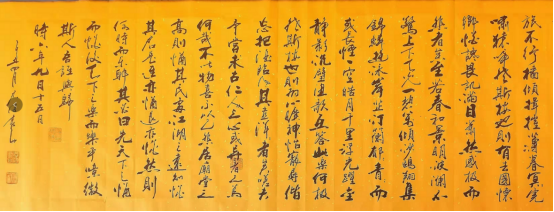 旅不行檣傾楫摧薄暮冥冥虎
嘯猿啼登斯樓也則有去國懷
鄉憂讒畏譏滿目蕭然感極而
悲者矣至若春和景明波瀾不
驚上下天光一碧萬頃沙鷗翔集
錦鱗游泳岸芷汀蘭郁郁青青而
或長煙一空皓月千里浮光躍金
靜影沉璧漁歌互答此樂何極
登斯樓也則有心曠神怡寵辱偕
忘把酒臨風其喜洋洋者矣嗟夫
予嘗求古仁人之心或異二者之為
何哉不以物喜不以己悲居廟堂之
高則憂其民處江湖之遠則憂
其君是進亦憂退亦憂然則
何時而樂耶其必曰先天下之憂
而憂後天下之樂而樂乎噫微
斯人吾誰與歸
時六年九月十五日